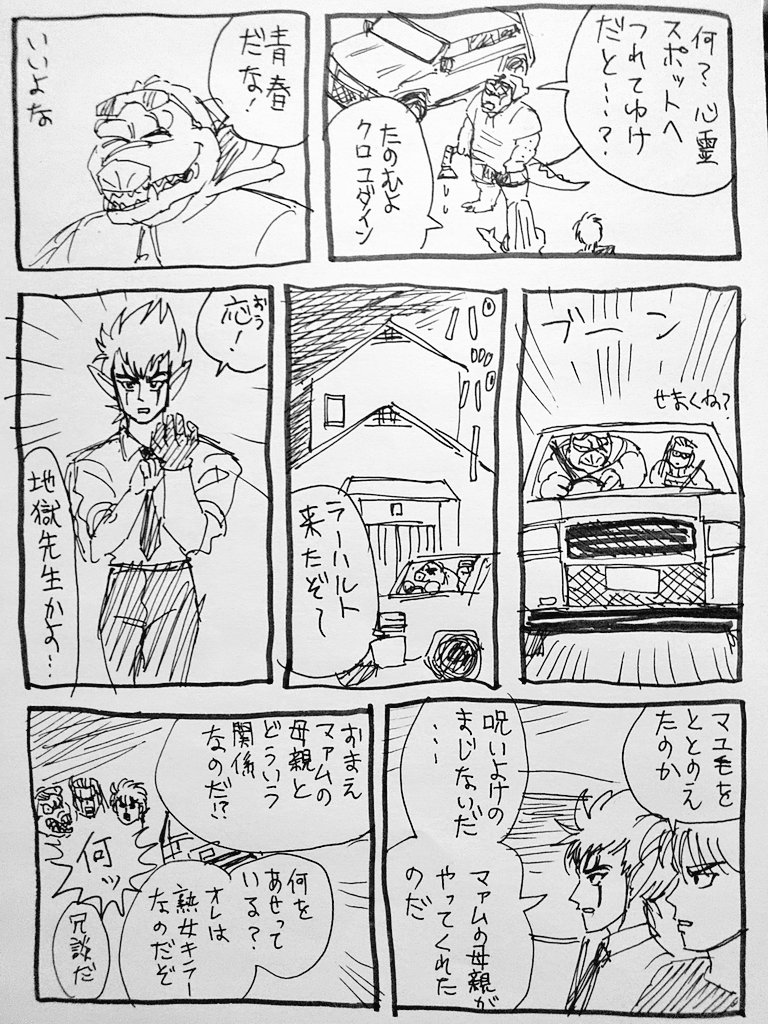 何？心霊
スポットへ
つれてゆけ
だと…？
たのむよ
クロコダイン
青春
だな！
いいよな
ブーン
せまくね？
ラーハルト
来たぞ〜
おう
応！
地獄先生かよ…
マユ毛を
ととのえ
たのか
呪いよけの
まじないだ
…
マァムの母親が
やってくれた
のだ
おまえ
マァムの
母親と
どういう
関係
なのだ!?
何を
あせって
いる？
オレは
熟女キラー
なのだぞ
何ッ
冗談だ